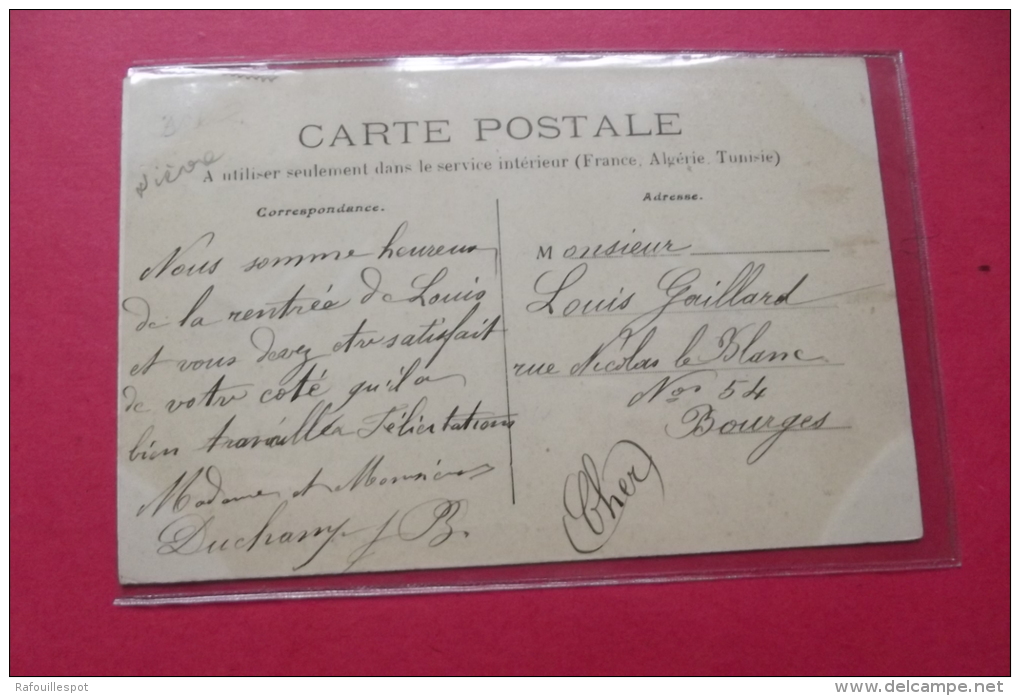 CARTE POSTALE
A utiliser seulement dans le service intérieur (France, Algérie, Tunisie)
Correspondance.
Nous somme heureux
de la rentrée de Louis
et vous devez etre satisfait
de votre coté qu'il a
bien travaillér Félicitations
Madame et Monsieur
Duchamp
Adresse.
Monsieur
Louis Gaillard
rue Nicolas le Blanc
No 54
Bourges
(Cher)
Rafouillespot
www.delcampe.net